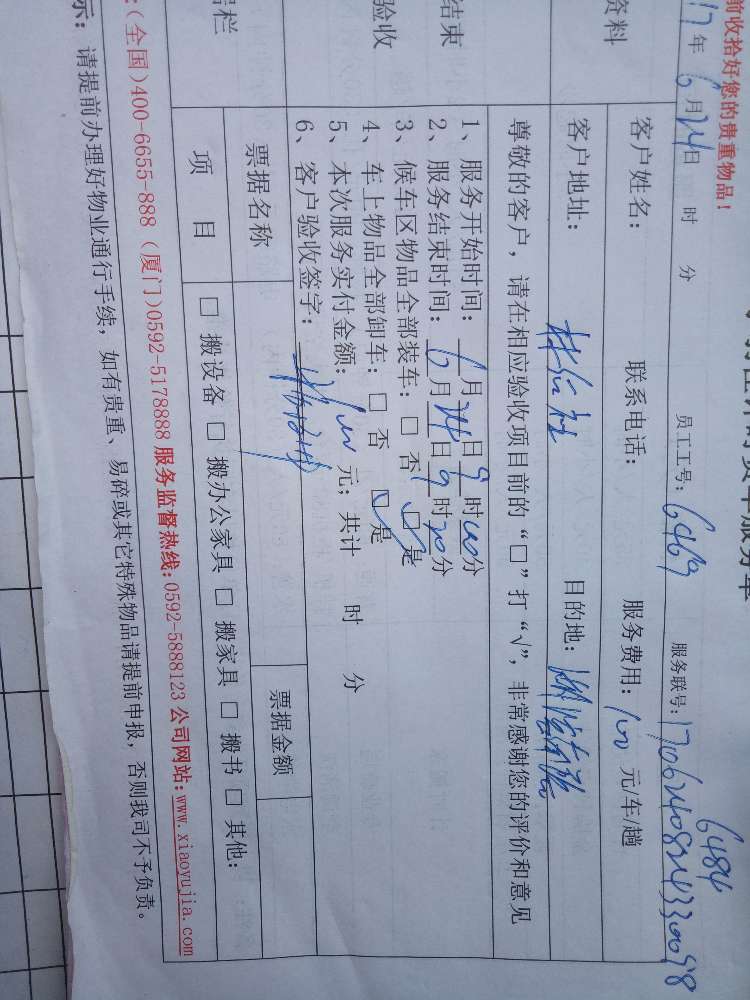 前收拾好您的贵重物品！
17年6月24日 时 分 员工工号：6469 服务联号：1706240824330098
6484
资料
客户姓名： 联系电话： 服务费用：100元/车/趟
客户地址： 目的地：
尊敬的客户，请在相应验收项目前的“□”打“√”，非常感谢您的评价和意见
结束
验收
1、服务开始时间：6月24日9时00分
2、服务结束时间：6月24日9时20分
3、候车区物品全部装车：□ 否 □ 是
4、车上物品全部卸车：□ 否 □ 是
5、本次服务实付金额：100元；共计 时 分
6、客户验收签字：
票据名称 票据金额
栏
项 目 □ 搬设备 □ 搬办公家具 □ 搬家具 □ 搬书 □ 其他：
：(全国)400-6655-888 (厦门)0592-5178888 服务监督热线：0592-5888123 公司网站：www.xiaoyujia.com
示：请提前办理好物业通行手续，如有贵重、易碎或其它特殊物品请提前申报，否则我司不予负责。